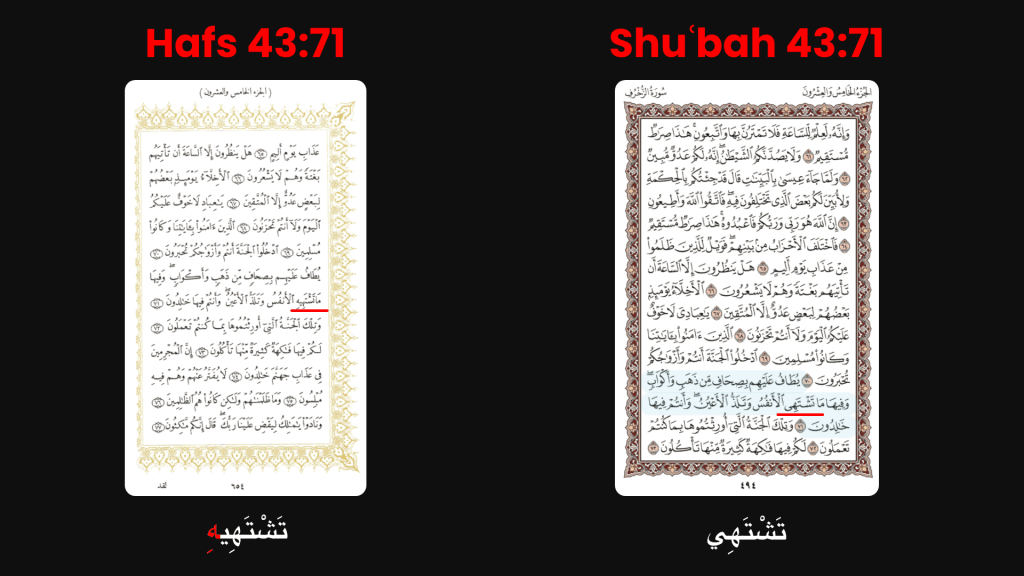 Hafs 43:71
( الجزء الخامس والعشرون )
عَذَابِ يَوْمٍ أَلِيمٍ ٦٥ هَلْ يَنظُرُونَ إِلَّا ٱلسَّاعَةَ أَن تَأْتِيَهُم
بَغْتَةً وَهُمْ لَا يَشْعُرُونَ ٦٦ ٱلْأَخِلَّآءُ يَوْمَئِذٍۭ بَعْضُهُمْ
لِبَعْضٍ عَدُوٌّ إِلَّا ٱلْمُتَّقِينَ ٦٧ يَٰعِبَادِ لَا خَوْفٌ عَلَيْكُمُ
ٱلْيَوْمَ وَلَآ أَنتُمْ تَحْزَنُونَ ٦٨ ٱلَّذِينَ ءَامَنُوا۟ بِـَٔايَٰتِنَا وَكَانُوا۟
مُسْلِمِينَ ٦٩ ٱدْخُلُوا۟ ٱلْجَنَّةَ أَنتُمْ وَأَزْوَٰجُكُمْ تُحْبَرُونَ ٧٠
يُطَافُ عَلَيْهِم بِصِحَافٍ مِّن ذَهَبٍ وَأَكْوَابٍ ۖ وَفِيهَا
مَا تَشْتَهِيهِ ٱلْأَنفُسُ وَتَلَذُّ ٱلْأَعْيُنُ ۖ وَأَنتُمْ فِيهَا خَٰلِدُونَ ٧١
وَتِلْكَ ٱلْجَنَّةُ ٱلَّتِىٓ أُورِثْتُمُوهَا بِمَا كُنتُمْ تَعْمَلُونَ ٧٢
لَكُمْ فِيهَا فَٰكِهَةٌ كَثِيرَةٌ مِّنْهَا تَأْكُلُونَ ٧٣ إِنَّ ٱلْمُجْرِمِينَ
فِى عَذَابِ جَهَنَّمَ خَٰلِدُونَ ٧٤ لَا يُفَتَّرُ عَنْهُمْ وَهُمْ فِيهِ
مُبْلِسُونَ ٧٥ وَمَا ظَلَمْنَٰهُمْ وَلَٰكِن كَانُوا۟ هُمُ ٱلظَّٰلِمِينَ ٧٦
وَنَادَوْا۟ يَٰمَٰلِكُ لِيَقْضِ عَلَيْنَا رَبُّكَ ۖ قَالَ إِنَّكُم مَّٰكِثُونَ ٧٧
٦٥٤
تَشْتَهِيهِ
Shuʿbah 43:71
الجُزْءُ الخَامِسُ وَالعِشْرُونَ
سُورَةُ الزُّخْرُفِ
وَإِنَّهُۥ لَعِلْمٌ لِّلسَّاعَةِ فَلَا تَمْتَرُنَّ بِهَا وَٱتَّبِعُونِ ۚ هَٰذَا صِرَٰطٌ
مُّسْتَقِيمٌ ٦١ وَلَا يَصُدَّنَّكُمُ ٱلشَّيْطَٰنُ ۖ إِنَّهُۥ لَكُمْ عَدُوٌّ مُّبِينٌ
٦٢ وَلَمَّا جَآءَ عِيسَىٰ بِٱلْبَيِّنَٰتِ قَالَ قَدْ جِئْتُكُم بِٱلْحِكْمَةِ
وَلِأُبَيِّنَ لَكُم بَعْضَ ٱلَّذِى تَخْتَلِفُونَ فِيهِ ۖ فَٱتَّقُوا۟ ٱللَّهَ وَأَطِيعُونِ
٦٣ إِنَّ ٱللَّهَ هُوَ رَبِّى وَرَبُّكُمْ فَٱعْبُدُوهُ ۚ هَٰذَا صِرَٰطٌ مُّسْتَقِيمٌ
٦٤ فَٱخْتَلَفَ ٱلْأَحْزَابُ مِنۢ بَيْنِهِمْ ۖ فَوَيْلٌ لِّلَّذِينَ ظَلَمُوا۟
مِنْ عَذَابِ يَوْمٍ أَلِيمٍ ٦٥ هَلْ يَنظُرُونَ إِلَّا ٱلسَّاعَةَ أَن
تَأْتِيَهُم بَغْتَةً وَهُمْ لَا يَشْعُرُونَ ٦٦ ٱلْأَخِلَّآءُ يَوْمَئِذٍۭ
بَعْضُهُمْ لِبَعْضٍ عَدُوٌّ إِلَّا ٱلْمُتَّقِينَ ٦٧ يَٰعِبَادِىَ لَا خَوْفٌ
عَلَيْكُمُ ٱلْيَوْمَ وَلَآ أَنتُمْ تَحْزَنُونَ ٦٨ ٱلَّذِينَ ءَامَنُوا۟ بِـَٔايَٰتِنَا
وَكَانُوا۟ مُسْلِمِينَ ٦٩ ٱدْخُلُوا۟ ٱلْجَنَّةَ أَنتُمْ وَأَزْوَٰجُكُمْ
تُحْبَرُونَ ٧٠ يُطَافُ عَلَيْهِم بِصِحَافٍ مِّن ذَهَبٍ وَأَكْوَابٍ ۖ
وَفِيهَا مَا تَشْتَهِى ٱلْأَنفُسُ وَتَلَذُّ ٱلْأَعْيُنُ ۖ وَأَنتُمْ فِيهَا
خَٰلِدُونَ ٧١ وَتِلْكَ ٱلْجَنَّةُ ٱلَّتِىٓ أُورِثْتُمُوهَا بِمَا كُنتُمْ
تَعْمَلُونَ ٧٢ لَكُمْ فِيهَا فَٰكِهَةٌ كَثِيرَةٌ مِّنْهَا تَأْكُلُونَ ٧٣
٤٩٤
تَشْتَهِي